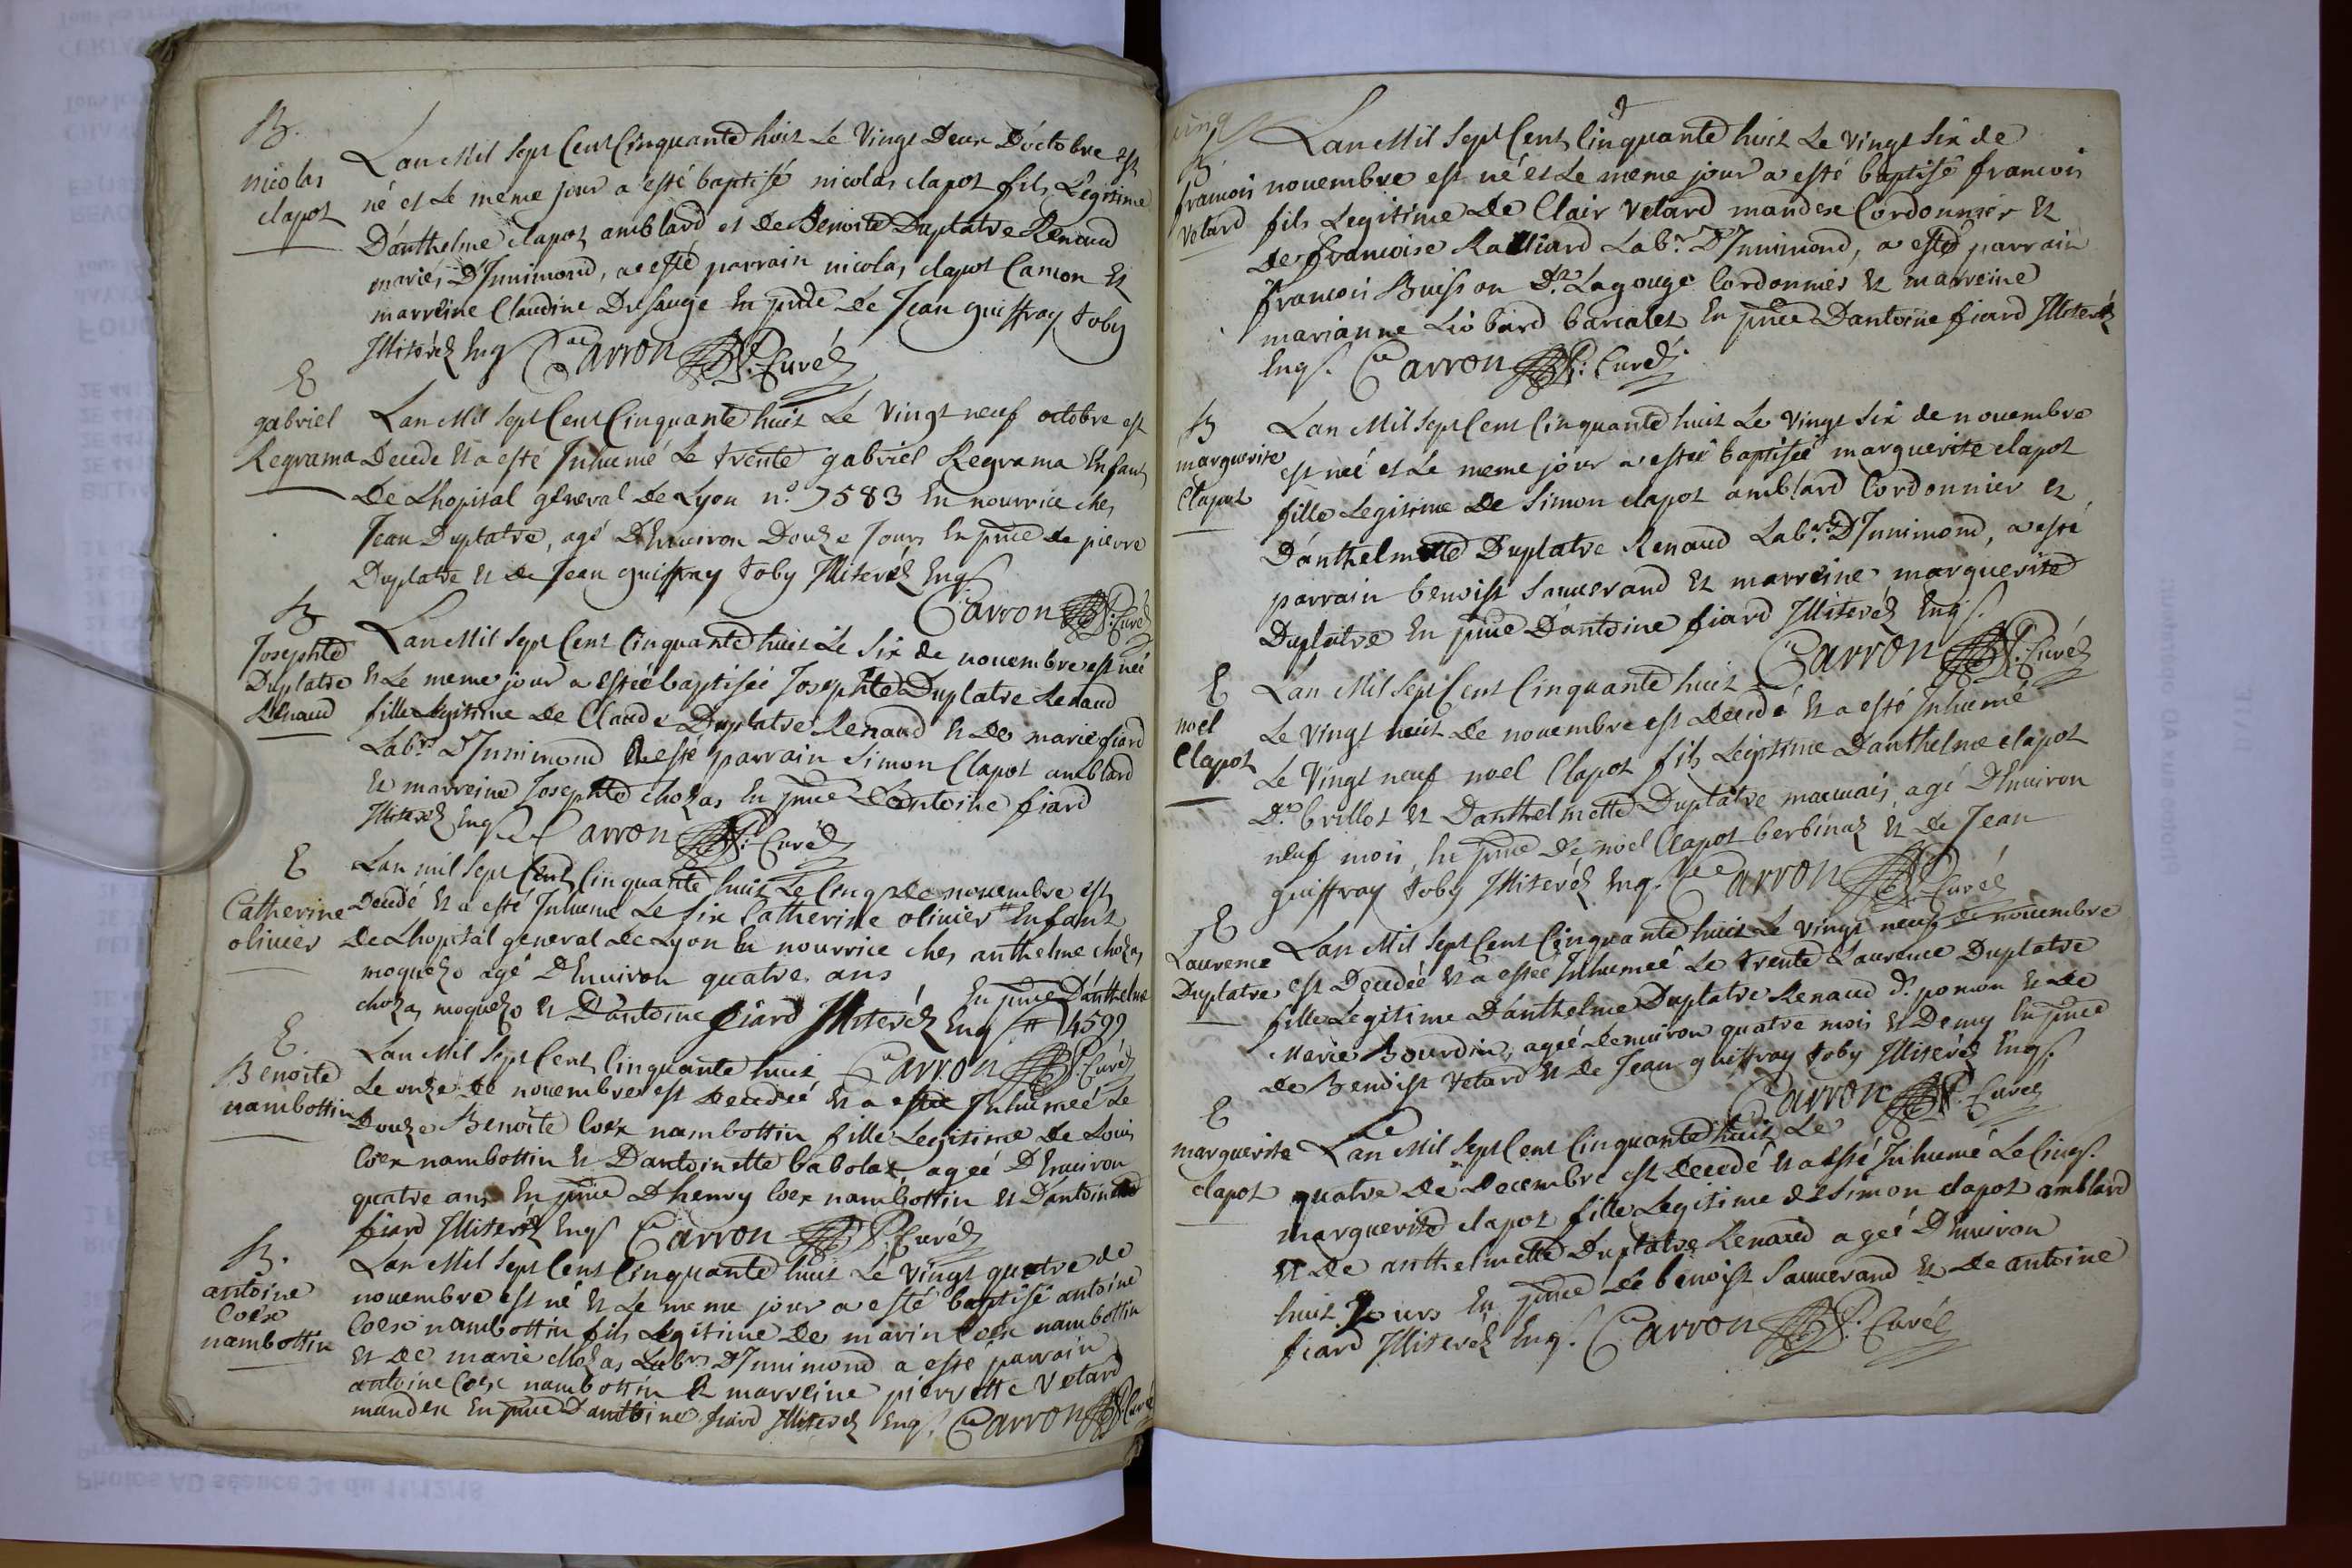 B.
nicolas
clapot
Lan Mil Sept Cent Cinquante huit Le Vingt Deux D'octobre est
né et Le meme jour a esté baptisé nicolas clapot fils Legitime
D'anthelme clapot amblard et De Benoite Duplatre Renaud
mariés D'Innimond, a esté parrain nicolas clapot Camon Et
marreine Claudine Dusauge En pnce De Jean guiffray toby
Illiterés Enqs Carron Curé
E
gabriel
Regrama
Lan Mil Sept Cent Cinquante huit Le Vingt neuf octobre est
Decede Et a esté Inhumé Le trente gabriel Regrama Enfant
De Lhopital general De Lyon n.° 7583 En nourrice ches
Jean Duplatre, agé D'Environ Douze Jours En pnce de pierre
Duplatre Et De Jean guiffray toby Illiterés Enqs
Carron Curé
B
Josephte
Duplatre
Renaud
Lan Mil Sept Cent Cinquante huit Le Six de novembre est née
Et Le meme jour a estée baptisée Josephte Duplatre Renaud
fille Legitime De Claude Duplatre Renaud Et De marie fiard
Labrs D'Innimond a esté parrain Simon Clapot amblard
Et marreine Josephte chozas En pnce D'antoine fiard
Illiterés Enqs Carron Curé
E
Catherine
olivier
Lan mil Sept Cent Cinquante huit Le Cinq De novembre est
Decedé Et a esté Inhumé Le Six Catherine olivier # Enfant
De Lhopital general De Lyon En nourrice ches anthelme chozas
moquezo agé D'Environ quatre ans
En pnce D'anthelme
chozas moquezo Et D'antoine fiard Illiterés Enqs # 14599
E.
Benoite
nambottin
Lan Mil Sept Cent Cinquante huit Carron Curé
Le onze De novembre est Decedée Et a estée Inhumeé Le
Douze Benoite Coex nambottin fille Legitime De Louis
Coex nambottin Et D'antoinette babolat ageé D'Environ
quatre ans En pnce D'henry Coex nambottin Et D'antoine
fiard Illiterés Enqs Carron Curé
B.
antoine
Coex
nambottin
Lan Mil Sept Cent Cinquante huit Le Vingt quatre de
novembre est né Et Le meme jour a esté baptisé antoine
Coex nambottin fils Legitime De marin Coex nambottin
Et De marie chozas Labrs D'Innimond a esté parrain
antoine Coex nambottin Et marreine pierrette Vetard
mandex En pnce D'antoine fiard Illiterés Enqs. Carron Curé
cinq
B
francois
Vetard
Lan Mil Sept Cent Cinquante huit Le Vingt Six de
novembre est né et Le meme jour a esté baptisé francois
fils Legitime De Clair Vetard mandex Cordonnier Et
De francoise Railliard Labr D'Innimond, a esté parrain
francois Buisson Dt Lagouge Cordonnier Et marreine
marianne Liobard barcatet En pnce D'antoine fiard Illiterés
Enqs. Carron Curé.
B
marguerite
Clapot
Lan Mil Sept Cent Cinquante huit Le Vingt Six de novembre
est neé et Le meme jour a esteé baptiseé marguerite clapot
fille Legitime De Simon clapot amblard Cordonnier et
D'anthelmette Duplatre Renaud Labrs D'Innimond, a esté
parrain benoist Sauverand Et marreine marguerite
Duplatre En pnce D'antoine fiard Illiterés Enqs.
Carron Curé
E
noel
Clapot
Lan Mil Sept Cent Cinquante huit
Le Vingt huit De novembre est Decedé Et a esté Inhumé
Le Vingt neuf noel Clapot fils Legitime D'anthelme clapot
Dt brillot Et D'anthelmette Duplatre mauvais, agé D'Environ
neuf mois, En pnce De noel Clapot berbinaz Et De Jean
guiffray toby Illiterés Enq. Carron Curé
E
Laurence
Duplatre
Lan Mil Sept Cent Cinquante huit Le Vingt neuf de novembre
est Decedée Et a estee Inhumeé Le trente Laurence Duplatre
fille Legitime D'anthelme Duplatre Renaud dt. ponion Et De
Marie Bourdin, ageé denviron quatre mois Et Demy En pnce
De Benoist Vetard Et De Jean guiffray toby Illiterés Enqs.
Carron Curé
E
marguerite
clapot
Lan Mil Sept Cent Cinquante huit Le
quatre De Decembre est Decedé Et a esté Inhumé Le Cinq.
marguerite clapot fille Legitime de Simon clapot amblard
Et De anthelmette Duplatre Renaud ageé D'Environ
huit Jours En pnce De benoist Sauverand Et De antoine
fiard Illiterés Enq. Carron Curé